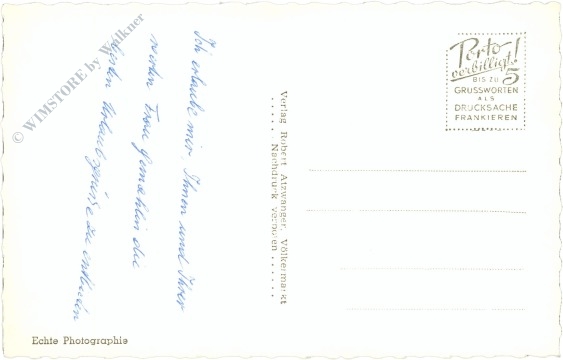 Ich erlaube mir, Ihnen und Ihrer
werten Frau Gemahlin die
besten Urlaubsgrüsse zu entbieten
Echte Photographie
Verlag Robert Atzwanger, Völkermarkt
...... Nachdruck verboten ......
Porto
verbilligt!
BIS ZU 5
GRUSSWORTEN
ALS
DRUCKSACHE
FRANKIEREN
© WIMSTORE by Wölkner